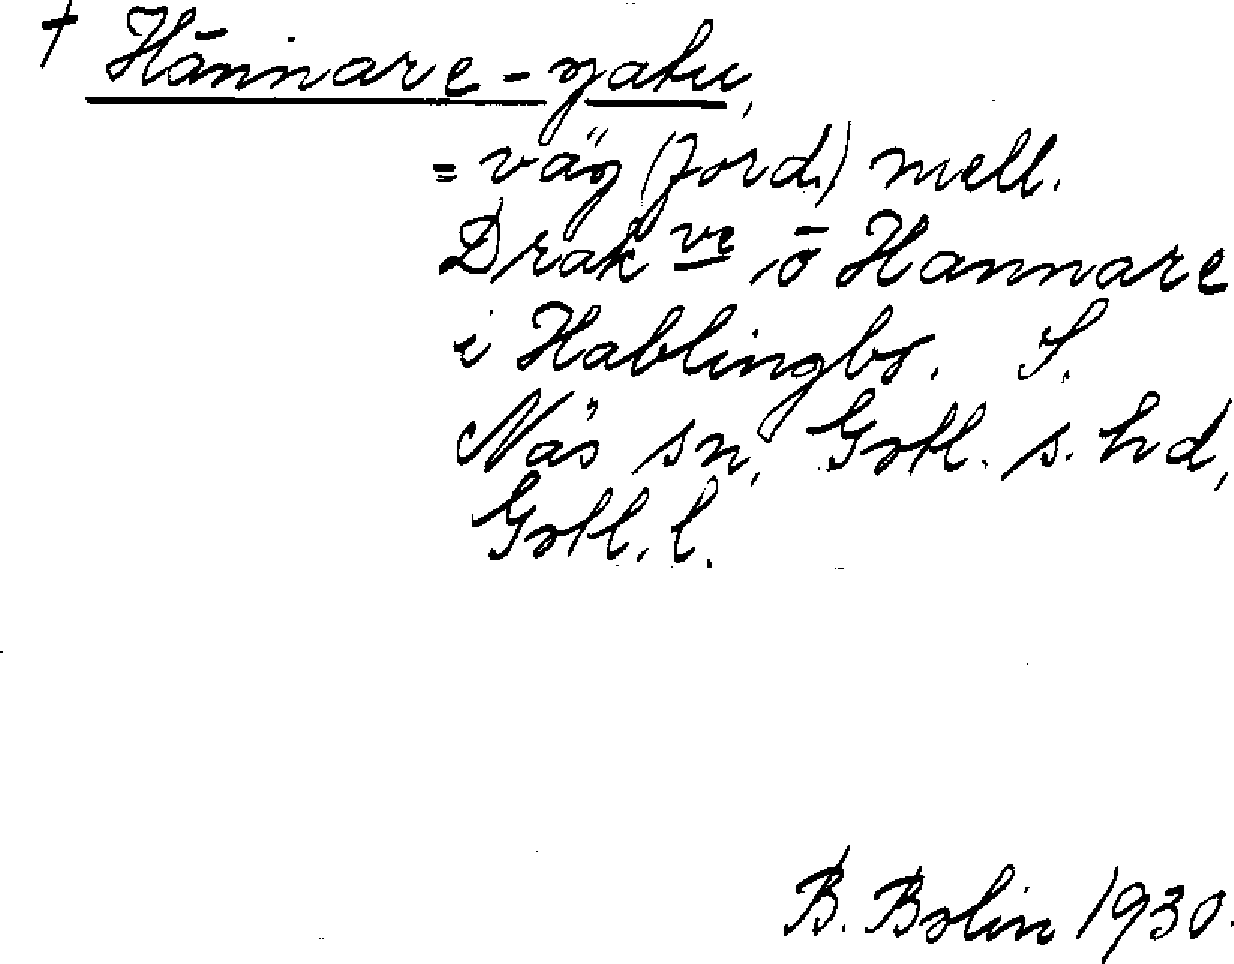 † Hānnare-gatu,
= väg (ford.) mell.
Drak ve, ō Hannare
i Hablingbo. S.
Näs sn, Gotl. s. hd,
Gotl. l.
B. Bolin 1930.